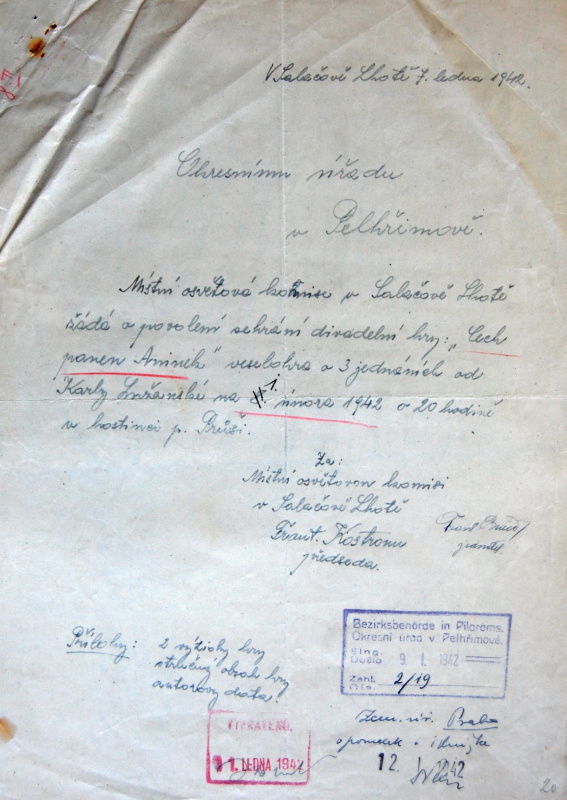 V Salačově Lhotě 7. ledna 1942.
Okresnímu úřadu
v Pelhřimově.
Místní osvětová komise v Salačově Lhotě
žádá o povolení sehrání divadelní hry: „Cech
panen Aninek" veselohra o 3 jednáních od
Karly Lužanské na 1. února 1942 o 20 hodině
v hostinci p. Průši.
Za:
Místní osvětovou komisi
v Salačově Lhotě
Frant. Kostroun
předseda.
Přílohy: 2 výtisky hry
stručný obsah hry
autorovy data.
Bezirksbehörde in Pilgrams.
Okresní úřad v Pelhřimově.
Eing.
Došlo 9. I. 1942
Zahl.
Čís. 2/19
VYPRAVENO.
11. LEDNA 1942
Zem. úř. Praha
12. I. 1942
20